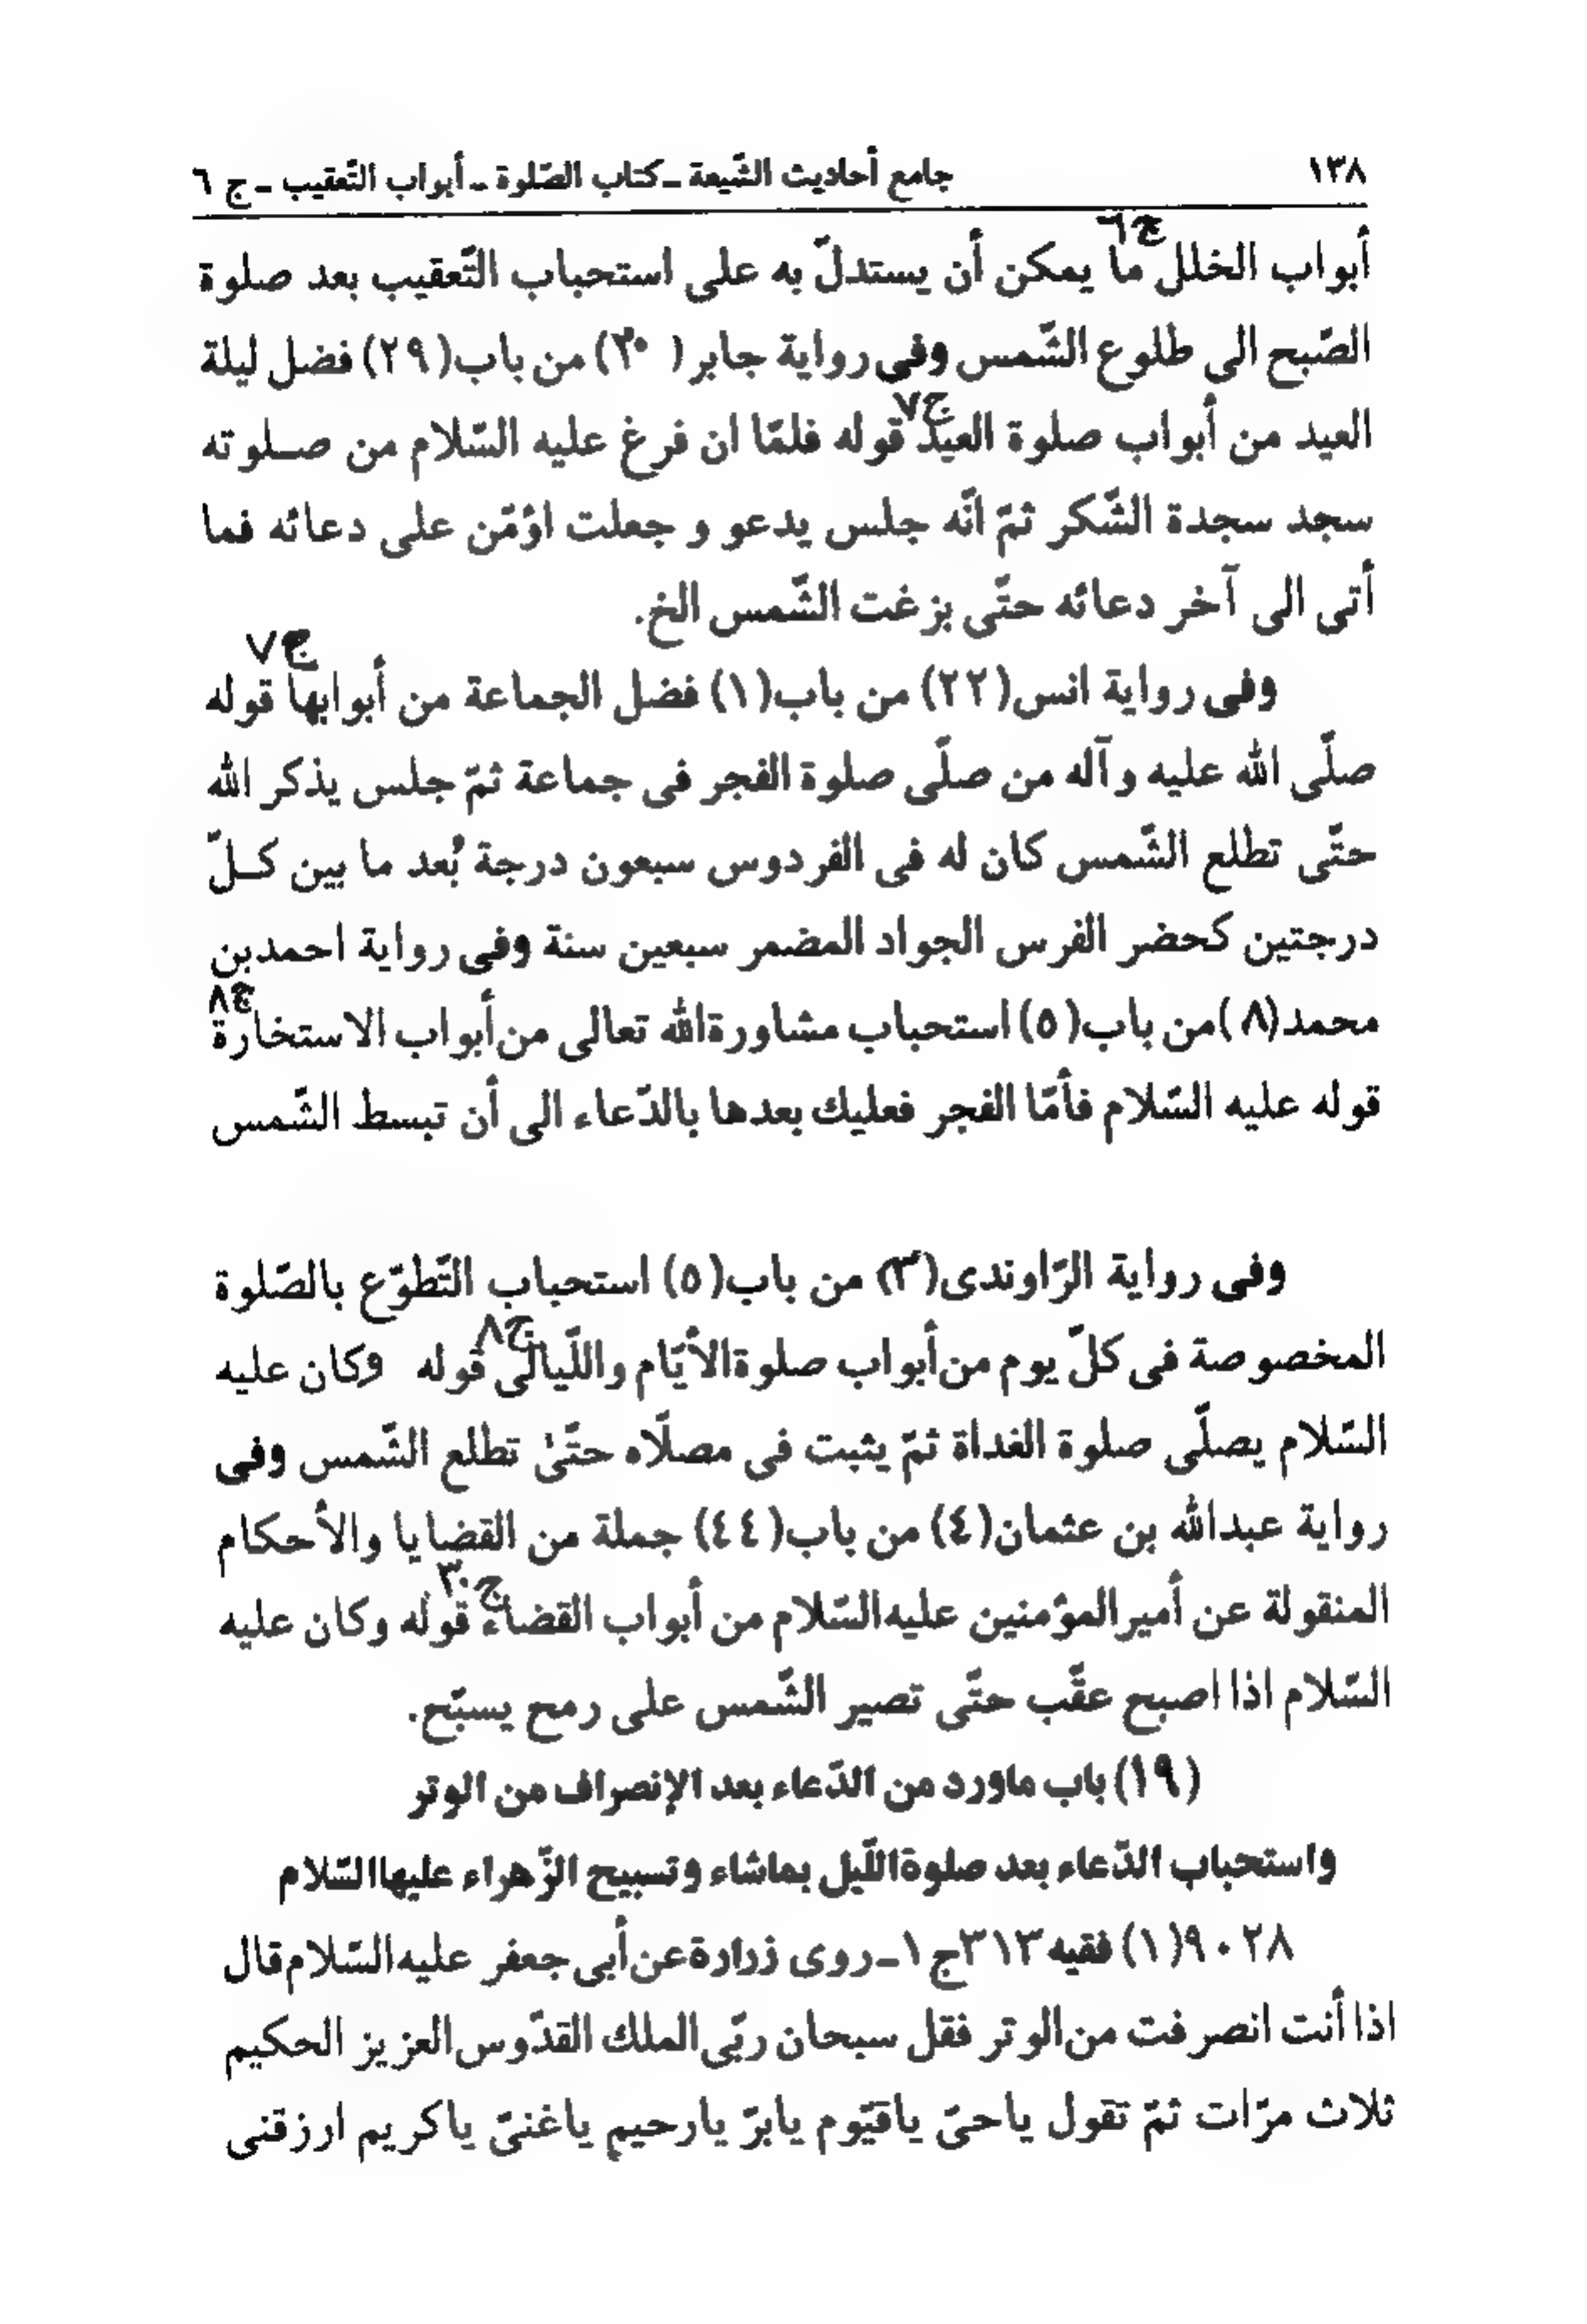 ١٣٨ جامع أحاديث الشّيعة ـ كتاب الصّلوة ـ أبواب التّعقيب ـ ج ٦
ج٦
أبواب الخلل ما يمكن أن يستدلّ به على استحباب التّعقيب بعد صلوة
الصّبح الى طلوع الشّمس وفى رواية جابر (٣٠) من باب (٢٩) فضل ليلة
ج٧
العيد من أبواب صلوة العيد قوله فلمّا ان فرغ عليه السّلام من صـلوته
سجد سجدة الشّكر ثمّ انّه جلس يدعو و جعلت اؤمّن على دعائه فما
أتى الى آخر دعائه حتّى بزغت الشّمس الخ.
ج٧
وفى رواية انس (٢٢) من باب (١) فضل الجماعة من أبوابها قوله
صلّى الله عليه وآله من صلّى صلوة الفجر فى جماعة ثمّ جلس يذكر الله
حتّى تطلع الشّمس كان له فى الفردوس سبعون درجة بُعد ما بين كـلّ
درجتين كحضر الفرس الجواد المضمر سبعين سنة وفى رواية احمدبن
ج٨
محمد (٨) من باب (٥) استحباب مشاورةالله تعالى من أبواب الاستخارة
قوله عليه السّلام فأمّا الفجر فعليك بعدها بالدّعاء الى أن تبسط الشّمس
وفى رواية الرّاوندى (٣) من باب (٥) استحباب التّطوّع بالصّلوة
ج٨
المخصوصة فى كلّ يوم من أبواب صلوة الأيّام واللّيالى قوله وكان عليه
السّلام يصلّى صلوة الغداة ثمّ يثبت فى مصلّاه حتّىٰ تطلع الشّمس وفى
رواية عبدالله بن عثمان (٤) من باب (٤٤) جملة من القضايا والأحكام
ج٣٠
المنقولة عن أميرالمؤمنين عليه السّلام من أبواب القضاء قوله وكان عليه
السّلام اذا اصبح عقّب حتّى تصير الشّمس على رمح يسبّح.
(١٩) باب ماورد من الدّعاء بعد الإنصراف من الوتر
واستحباب الدّعاء بعد صلوة اللّيل بماشاء وتسبيح الزّهراء عليها السّلام
٩٠٢٨ (١) فقيه ٣١٣ ج ١ ـ روى زرارة عن أبى جعفر عليه السّلام قال
اذا أنت انصرفت من الوتر فقل سبحان ربّى الملك القدّوس العزيز الحكيم
ثلاث مرّات ثمّ تقول ياحىّ ياقيّوم يابرّ يارحيم ياغنىّ ياكريم ارزقنى